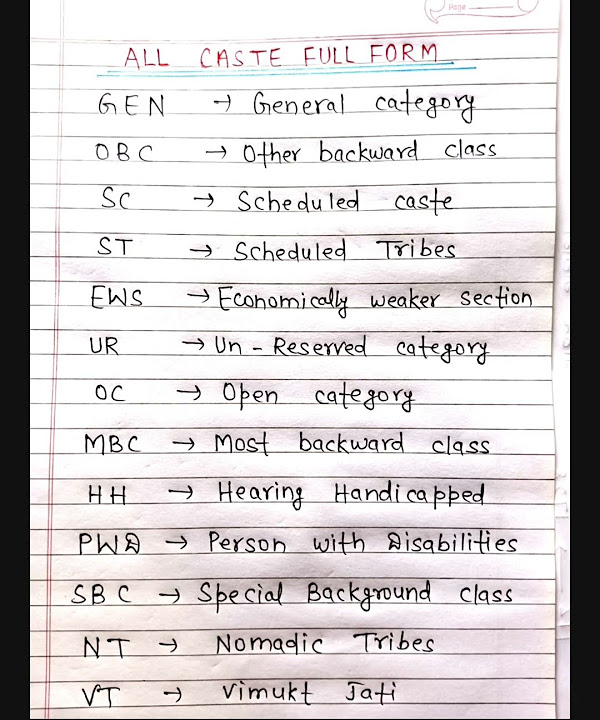 Page
ALL CASTE FULL FORM
GEN → General category
OBC → Other backward class
SC → Scheduled caste
ST → Scheduled Tribes
EWS → Economically weaker section
UR → Un-Reserved category
OC → Open category
MBC → Most backward class
HH → Hearing Handicapped
PWD → Person with Disabilities
SBC → Special Background class
NT → Nomadic Tribes
VT → Vimukt Jati